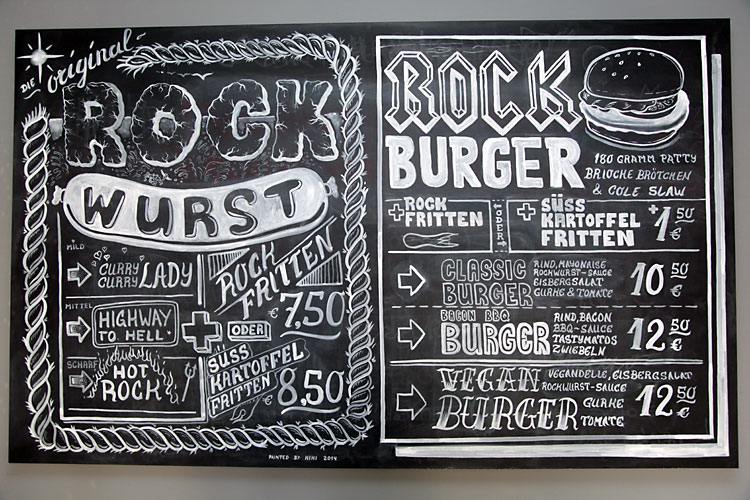 DIE original
ROCK
WURST
MILD
CURRY
CURRY LADY
MITTEL
HIGHWAY
TO HELL*
SCHARF
HOT
ROCK
+
ROCK
FRITTEN
€ 7,50
ODER
SÜSS
KARTOFFEL
FRITTEN
€ 8,50
PAINTED BY NINI 2014
ROCK
BURGER
180 GRAMM PATTY
BRIOCHE BRÖTCHEN
& COLE SLAW
+ ROCK
FRITTEN
ODER
+ SÜSS
KARTOFFEL
FRITTEN
+1,50 €
CLASSIC
BURGER
RIND, MAYONAISE
ROCKWURST-SAUCE
EISBERGSALAT
GURKE & TOMATE
10,50 €
BACON BBQ
BURGER
RIND, BACON
BBQ-SAUCE
TASTYMATOS
ZWIEBELN
12,50 €
VEGAN
BURGER
VEGANDELLE, EISBERGSALAT
ROCKWURST-SAUCE
GURKE
TOMATE
12,50 €